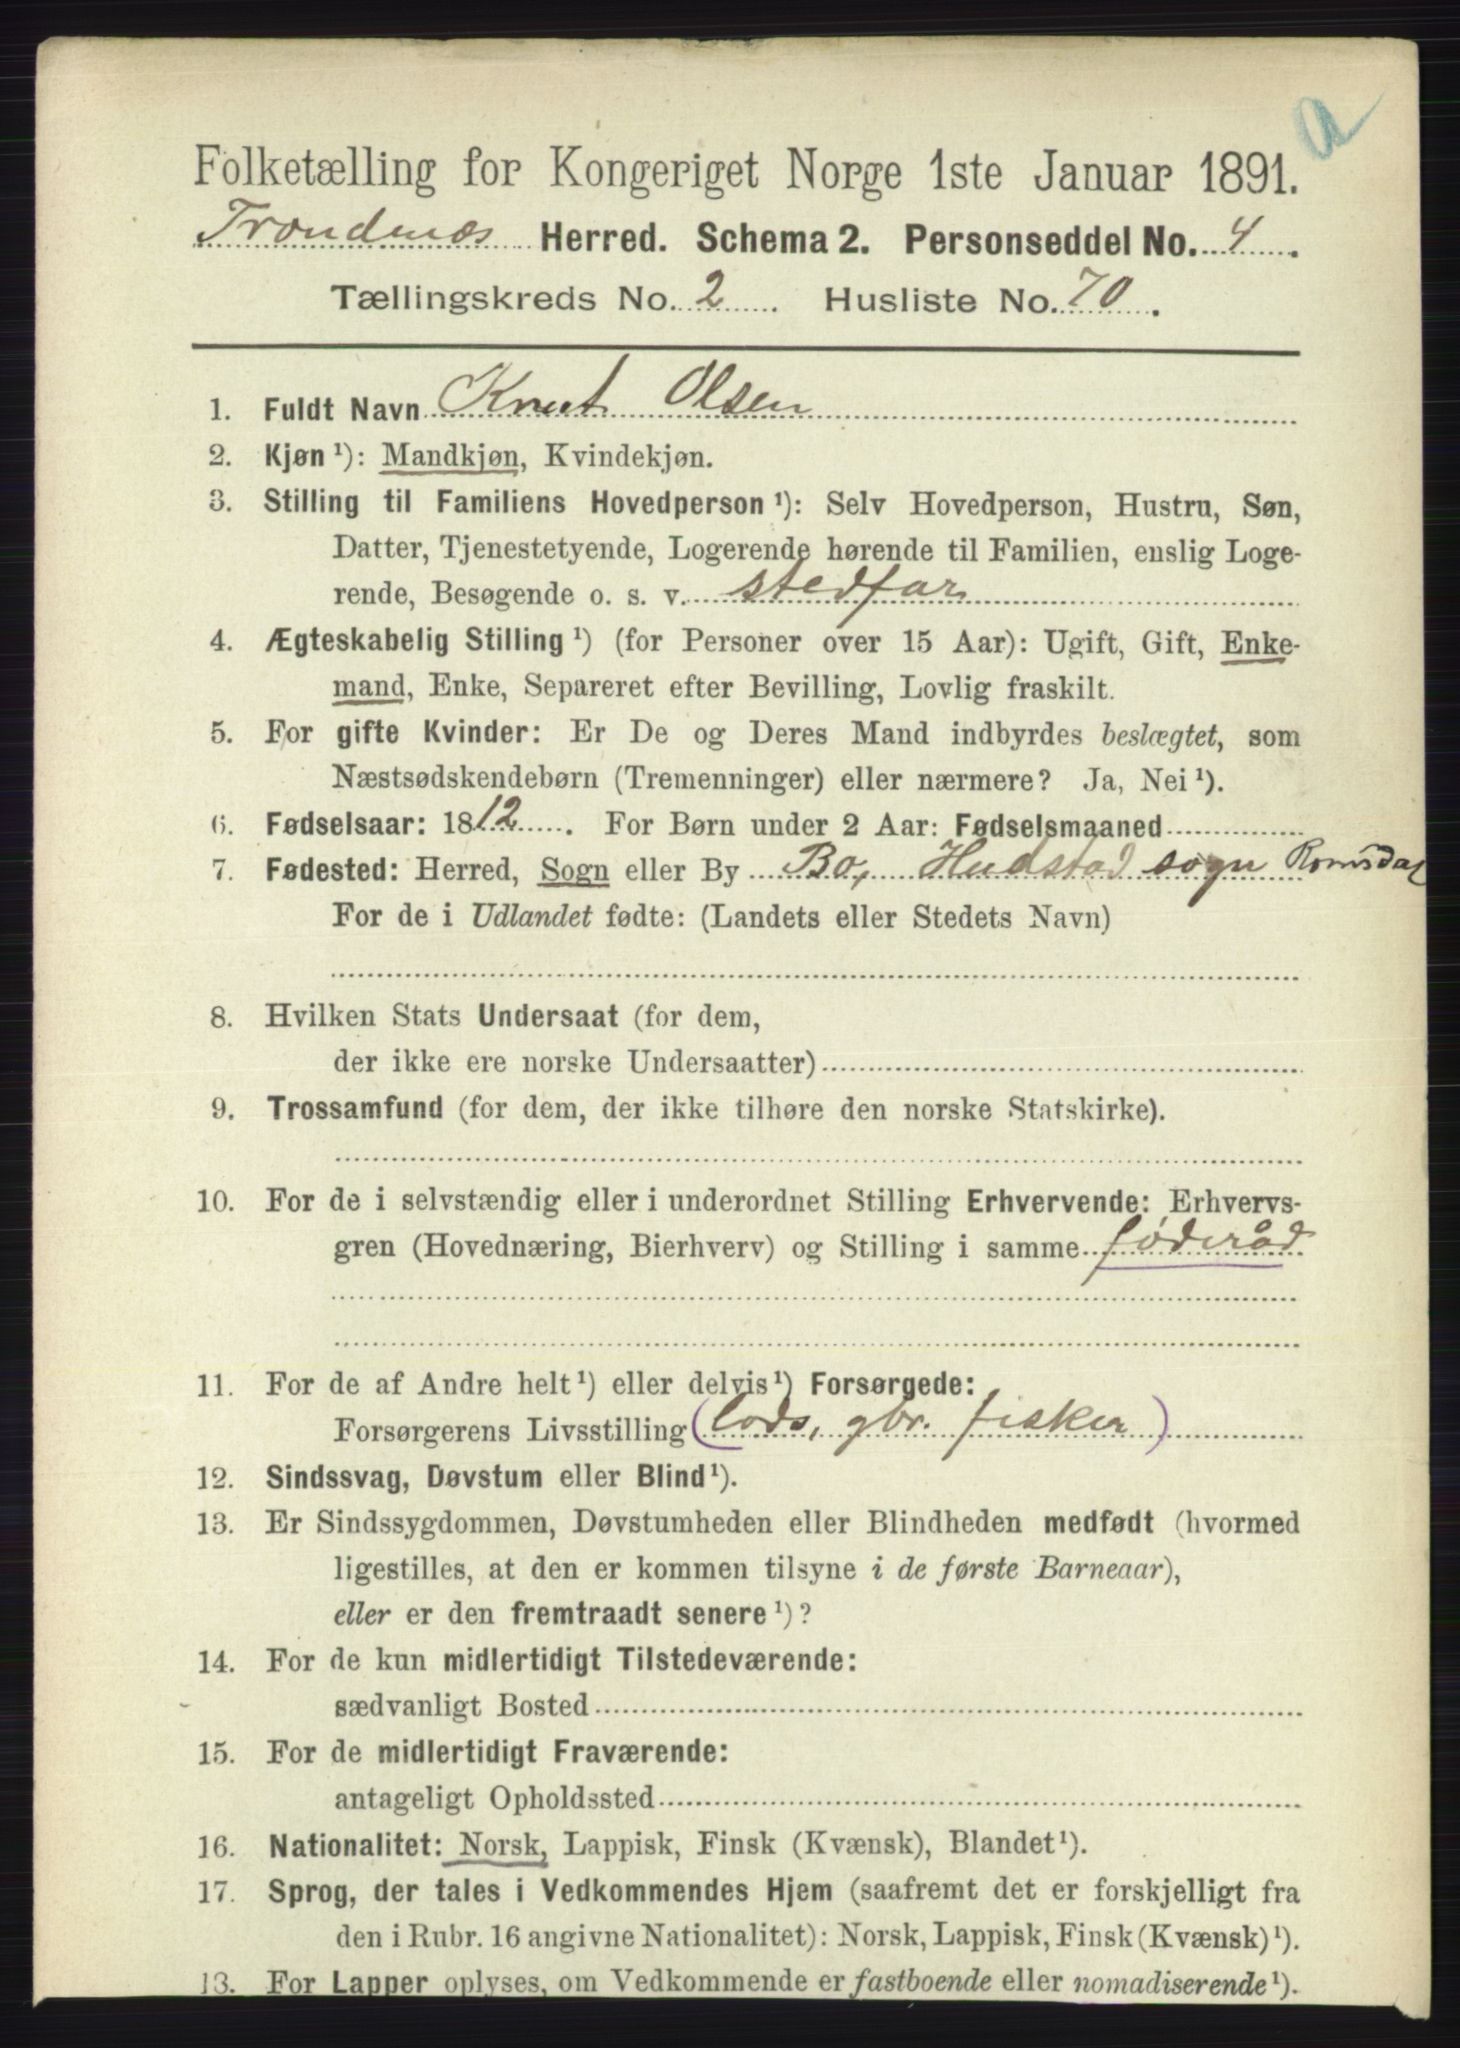 a
Folketælling for Kongeriget Norge 1ste Januar 1891.
Trondenæs Herred. Schema 2. Personseddel No. 4.
Tællingskreds No. 2. Husliste No. 70.
1. Fuldt Navn Knut Olsen
2. Kjøn ¹): Mandkjøn, Kvindekjøn.
3. Stilling til Familiens Hovedperson ¹): Selv Hovedperson, Hustru, Søn,
Datter, Tjenestetyende, Logerende hørende til Familien, enslig Loge-
rende, Besøgende o. s. v. stedfar
4. Ægteskabelig Stilling ¹) (for Personer over 15 Aar): Ugift, Gift, Enke-
mand, Enke, Separeret efter Bevilling, Lovlig fraskilt.
5. For gifte Kvinder: Er De og Deres Mand indbyrdes beslægtet, som
Næstsødskendebørn (Tremenninger) eller nærmere? Ja, Nei ¹).
6. Fødselsaar: 1812. For Børn under 2 Aar: Fødselsmaaned
7. Fødested: Herred, Sogn eller By Bo, Hudstad sogn Romsdal
For de i Udlandet fødte: (Landets eller Stedets Navn)
8. Hvilken Stats Undersaat (for dem,
der ikke ere norske Undersaatter)
9. Trossamfund (for dem, der ikke tilhøre den norske Statskirke).
10. For de i selvstændig eller i underordnet Stilling Erhvervende: Erhvervs-
gren (Hovednæring, Bierhverv) og Stilling i samme føderåd
11. For de af Andre helt ¹) eller delvis ¹) Forsørgede:
Forsørgerens Livsstilling (lods, gbr. fisker)
12. Sindssvag, Døvstum eller Blind ¹).
13. Er Sindssygdommen, Døvstumheden eller Blindheden medfødt (hvormed
ligestilles, at den er kommen tilsyne i de første Barneaar),
eller er den fremtraadt senere ¹)?
14. For de kun midlertidigt Tilstedeværende:
sædvanligt Bosted
15. For de midlertidigt Fraværende:
antageligt Opholdssted
16. Nationalitet: Norsk, Lappisk, Finsk (Kvænsk), Blandet ¹).
17. Sprog, der tales i Vedkommendes Hjem (saafremt det er forskjelligt fra
den i Rubr. 16 angivne Nationalitet): Norsk, Lappisk, Finsk (Kvænsk) ¹).
13. For Lapper oplyses, om Vedkommende er fastboende eller nomadiserende ¹).